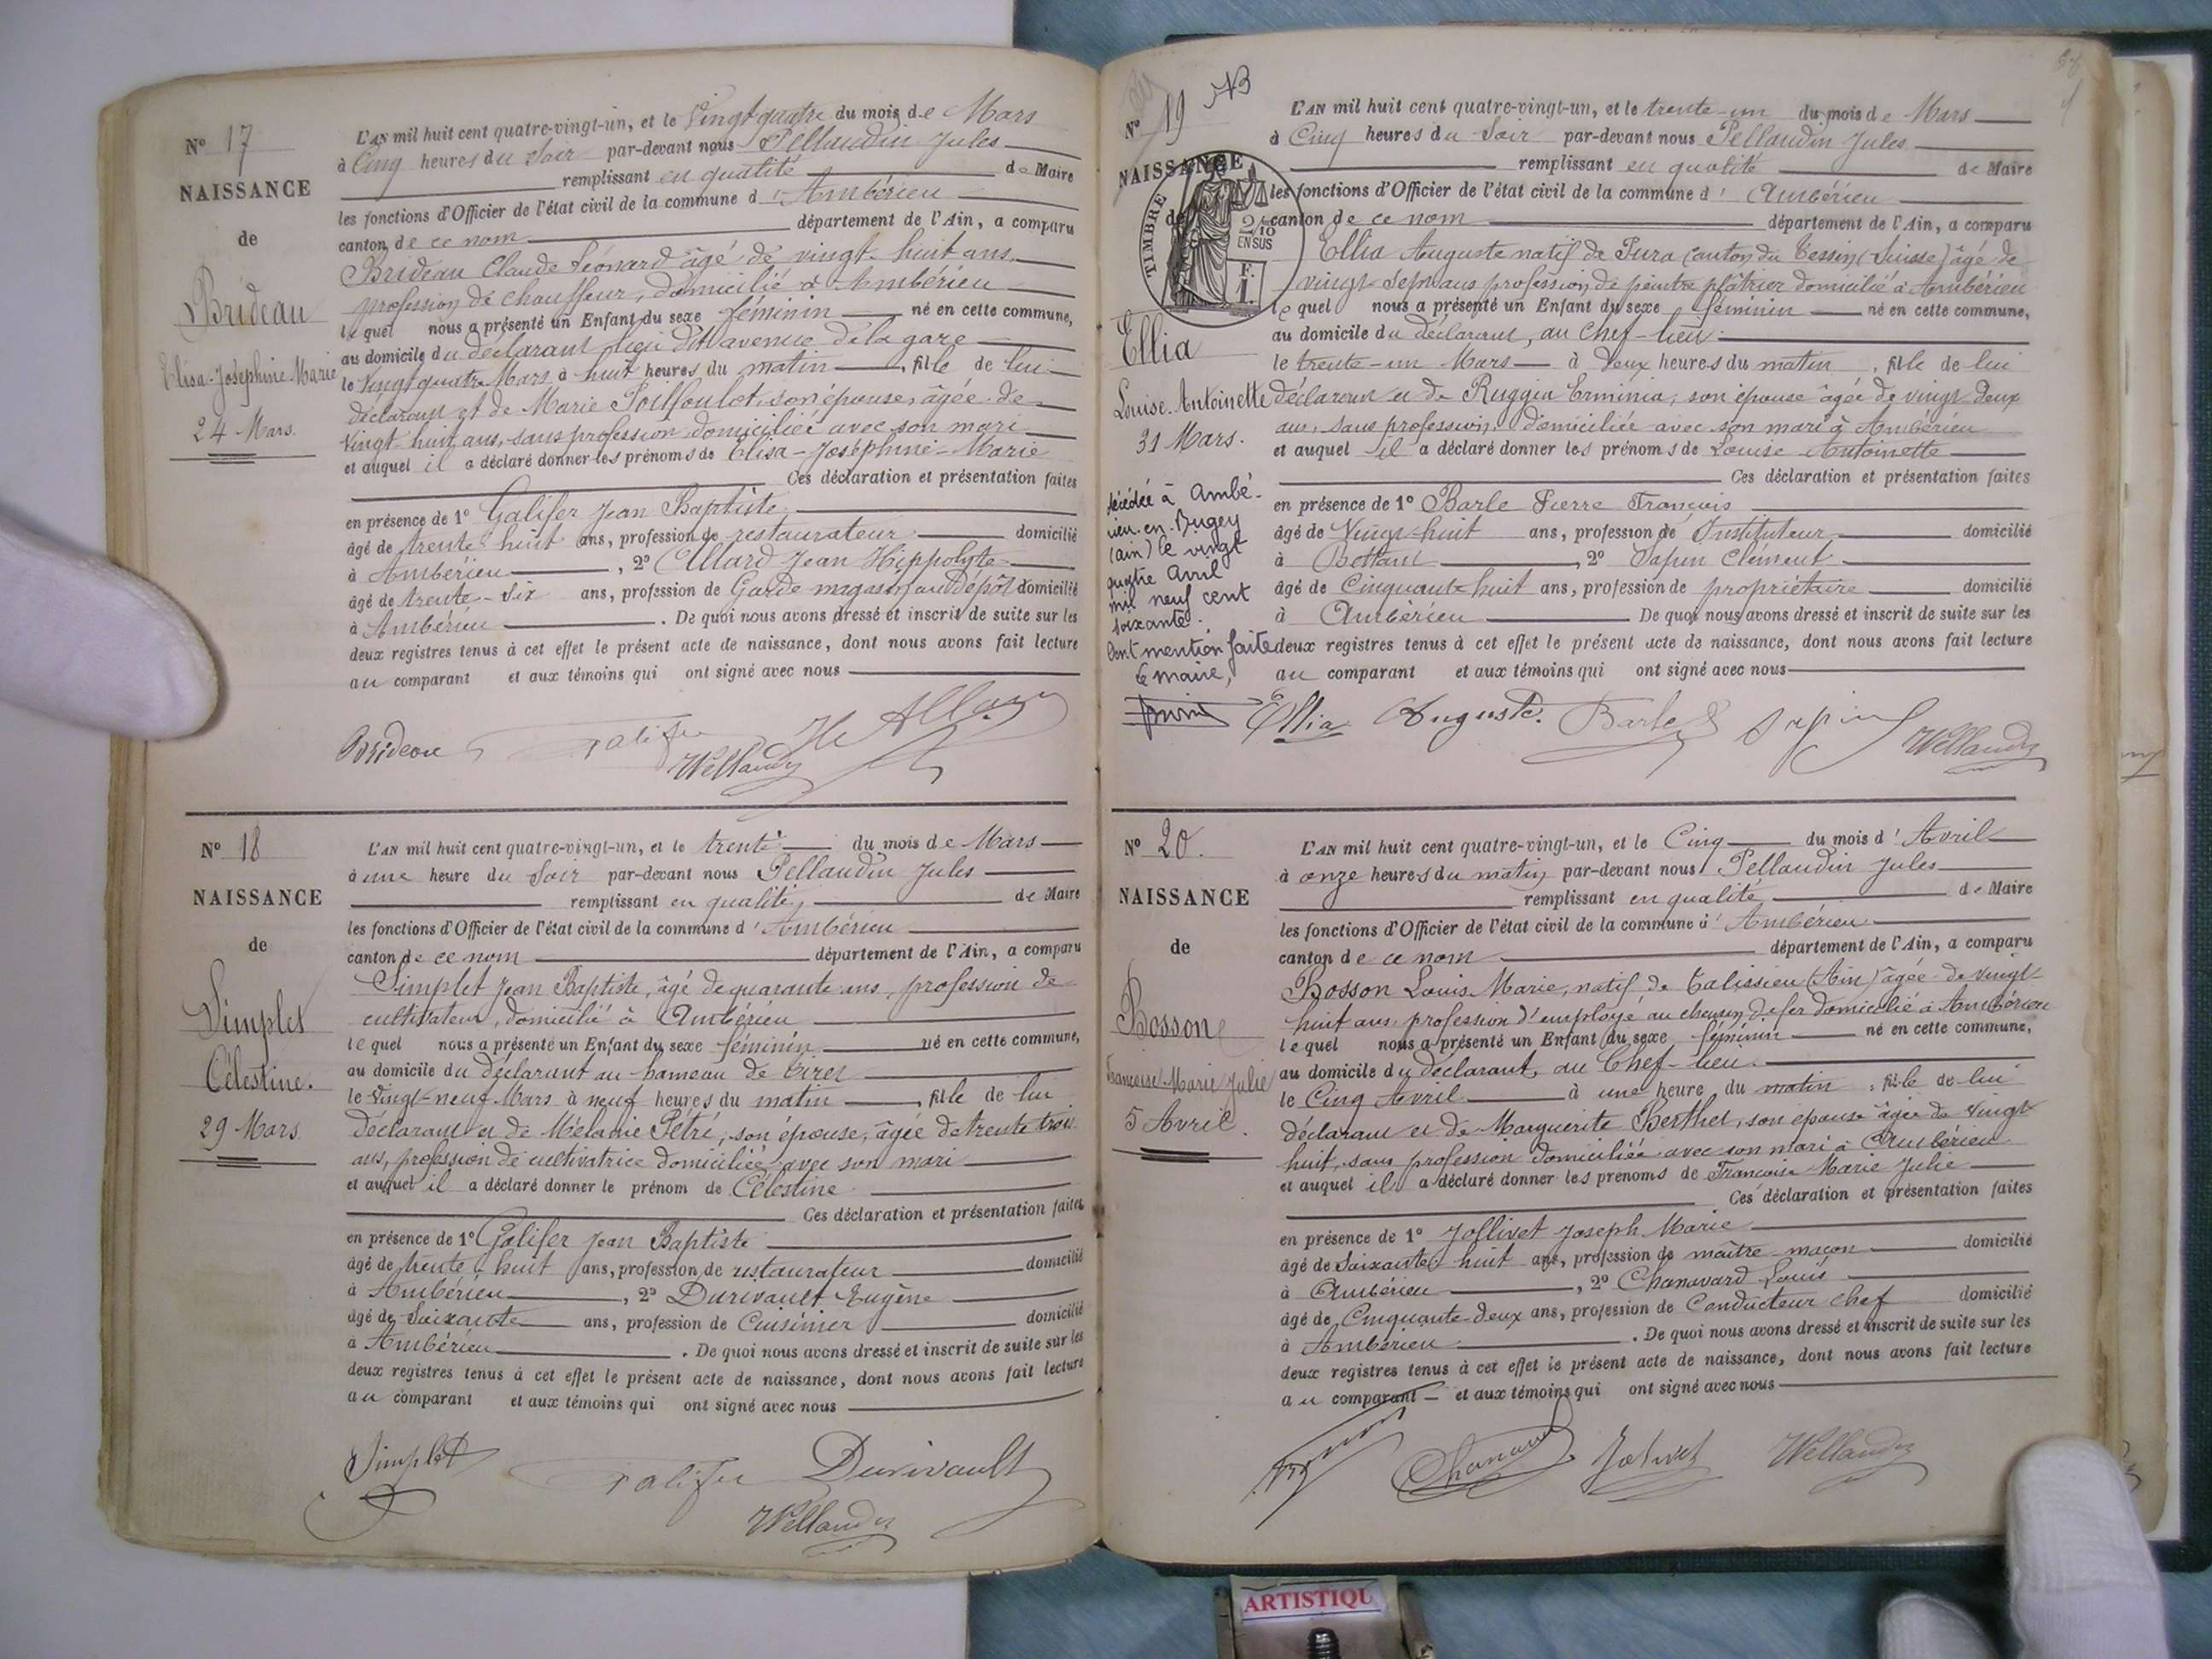 Nº 17
NAISSANCE
de
Brideau
Elisa-Joséphine-Marie
24 Mars.
L'AN mil huit cent quatre-vingt-un, et le Vingt quatre du mois de Mars
à Cinq heures du Soir par-devant nous Pellaudin Jules
remplissant en qualité de Maire
les fonctions d'Officier de l'état civil de la commune d'Ambérieu
canton de ce nom département de l'Ain, a comparu
Brideau Claude Léonard âgé de vingt-huit ans,
profession de chauffeur, domicilié à Ambérieu
lequel nous a présenté un Enfant du sexe féminin né en cette commune,
au domicile du déclarant lieu dit avenue de la gare
le Vingt quatre Mars à huit heures du matin, fille de lui
déclarant et de Marie son épouse, âgée de
Vingt-huit ans, sans profession domiciliée avec son mari
et auquel il a déclaré donner les prénoms de Elisa-Joséphine-Marie
Ces déclaration et présentation faites
en présence de 1º Galifer Jean Baptiste
âgé de trente huit ans, profession de restaurateur domicilié
à Ambérieu, 2º Allard Jean Hippolyte
âgé de trente-six ans, profession de Garde magasin au Dépôt domicilié
à Ambérieu. De quoi nous avons dressé et inscrit de suite sur les
deux registres tenus à cet effet le présent acte de naissance, dont nous avons fait lecture
au comparant et aux témoins qui ont signé avec nous
Brideau Galifer H Allard
Pellaudin
Nº 18
NAISSANCE
de
Simplet
Célestine.
29 Mars
L'AN mil huit cent quatre-vingt-un, et le trente du mois de Mars
à une heure du Soir par-devant nous Pellaudin Jules
remplissant en qualité de Maire
les fonctions d'Officier de l'état civil de la commune d'Ambérieu
canton de ce nom département de l'Ain, a comparu
Simplet Jean Baptiste, âgé de quarante ans, profession de
cultivateur, domicilié à Ambérieu
lequel nous a présenté un Enfant du sexe féminin né en cette commune,
au domicile du déclarant au hameau de Tiret
le Vingt-neuf Mars à neuf heures du matin, fille de lui
déclarant et de Mélanie Pétré, son épouse, âgée de trente trois
ans, profession de cultivatrice domiciliée avec son mari
et auquel il a déclaré donner le prénom de Célestine
Ces déclaration et présentation faites
en présence de 1º Galifer Jean Baptiste
âgé de trente-huit ans, profession de restaurateur domicilié
à Ambérieu, 2º Durivault Eugène
âgé de Soixante ans, profession de Cuisinier domicilié
à Ambérieu. De quoi nous avons dressé et inscrit de suite sur les
deux registres tenus à cet effet le présent acte de naissance, dont nous avons fait lecture
au comparant et aux témoins qui ont signé avec nous
Simplet Galifer Durivault
Pellaudin
Nº 19
NAISSANCE
de
TIMBRE
2/10
EN SUS
F.
1.
Ellia
Louise-Antoinette
31 Mars.
décédée à Ambé-
rieu-en-Bugey
(ain) le vingt
quatre Avril
mil neuf cent
soixante.
Dont mention faite
Le maire,
L'AN mil huit cent quatre-vingt-un, et le trente-un du mois de Mars
à Cinq heures du Soir par-devant nous Pellaudin Jules
remplissant en qualité de Maire
les fonctions d'Officier de l'état civil de la commune d'Ambérieu
canton de ce nom département de l'Ain, a comparu
Ellia Auguste natif de Pura canton du Tessin (Suisse) âgé de
vingt-sept ans profession de peintre plâtrier domicilié à Ambérieu
lequel nous a présenté un Enfant du sexe féminin né en cette commune,
au domicile du déclarant, au Chef-lieu
le trente-un Mars à Deux heures du matin, fille de lui
déclarant et de Ruggia Erminia, son épouse âgée de vingt Deux
ans, sans profession, domiciliée avec son mari à Ambérieu
et auquel il a déclaré donner les prénoms de Louise Antoinette
Ces déclaration et présentation faites
en présence de 1º Barle Pierre François
âgé de Vingt-huit ans, profession de Instituteur domicilié
à Bettant, 2º Sapin Clément
âgé de Cinquante huit ans, profession de propriétaire domicilié
à Ambérieu De quoi nous avons dressé et inscrit de suite sur les
deux registres tenus à cet effet le présent acte de naissance, dont nous avons fait lecture
au comparant et aux témoins qui ont signé avec nous
Ellia Auguste. Barle Sapin Pellaudin
Nº 20.
NAISSANCE
de
Bosson
Françoise Marie Julie
5 Avril.
L'AN mil huit cent quatre-vingt-un, et le Cinq du mois d'Avril
à onze heures du matin par-devant nous Pellaudin Jules
remplissant en qualité de Maire
les fonctions d'Officier de l'état civil de la commune d'Ambérieu
canton de ce nom département de l'Ain, a comparu
Bosson Louis Marie, natif de Talissieu (Ain) âgée de vingt
huit ans, profession d'employé au chemin de fer domicilié à Ambérieu
lequel nous a présenté un Enfant du sexe féminin né en cette commune,
au domicile du déclarant, au Chef-lieu
le Cinq Avril à une heure du matin, fille de lui
déclarant et de Marguerite Berthet, son épouse âgée de Vingt
huit, sans profession domiciliée avec son mari à Ambérieu
et auquel il a déclaré donner les prénoms de Françoise Marie Julie
Ces déclaration et présentation faites
en présence de 1º Jollivet Joseph Marie
âgé de Soixante huit ans, profession de maître-maçon domicilié
à Ambérieu, 2º Chanavard Louis
âgé de Cinquante-deux ans, profession de Conducteur chef domicilié
à Ambérieu. De quoi nous avons dressé et inscrit de suite sur les
deux registres tenus à cet effet le présent acte de naissance, dont nous avons fait lecture
au comparant et aux témoins qui ont signé avec nous
Jolivet Pellaudin
ARTISTIQU